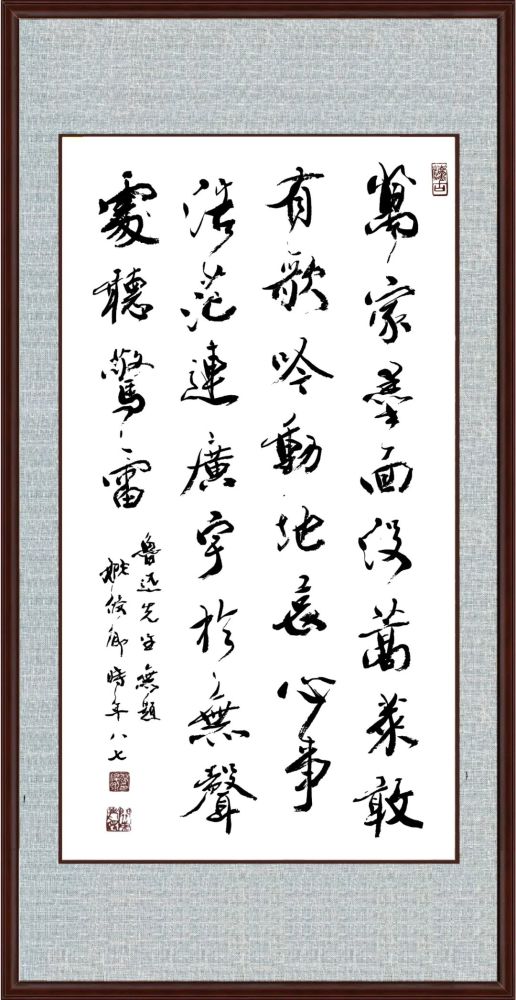 萬家墨面没蒿萊敢
有歌吟動地哀心事
浩茫連廣宇於無聲
處聽驚雷
魯迅先生無題
姚俊卿時年八七